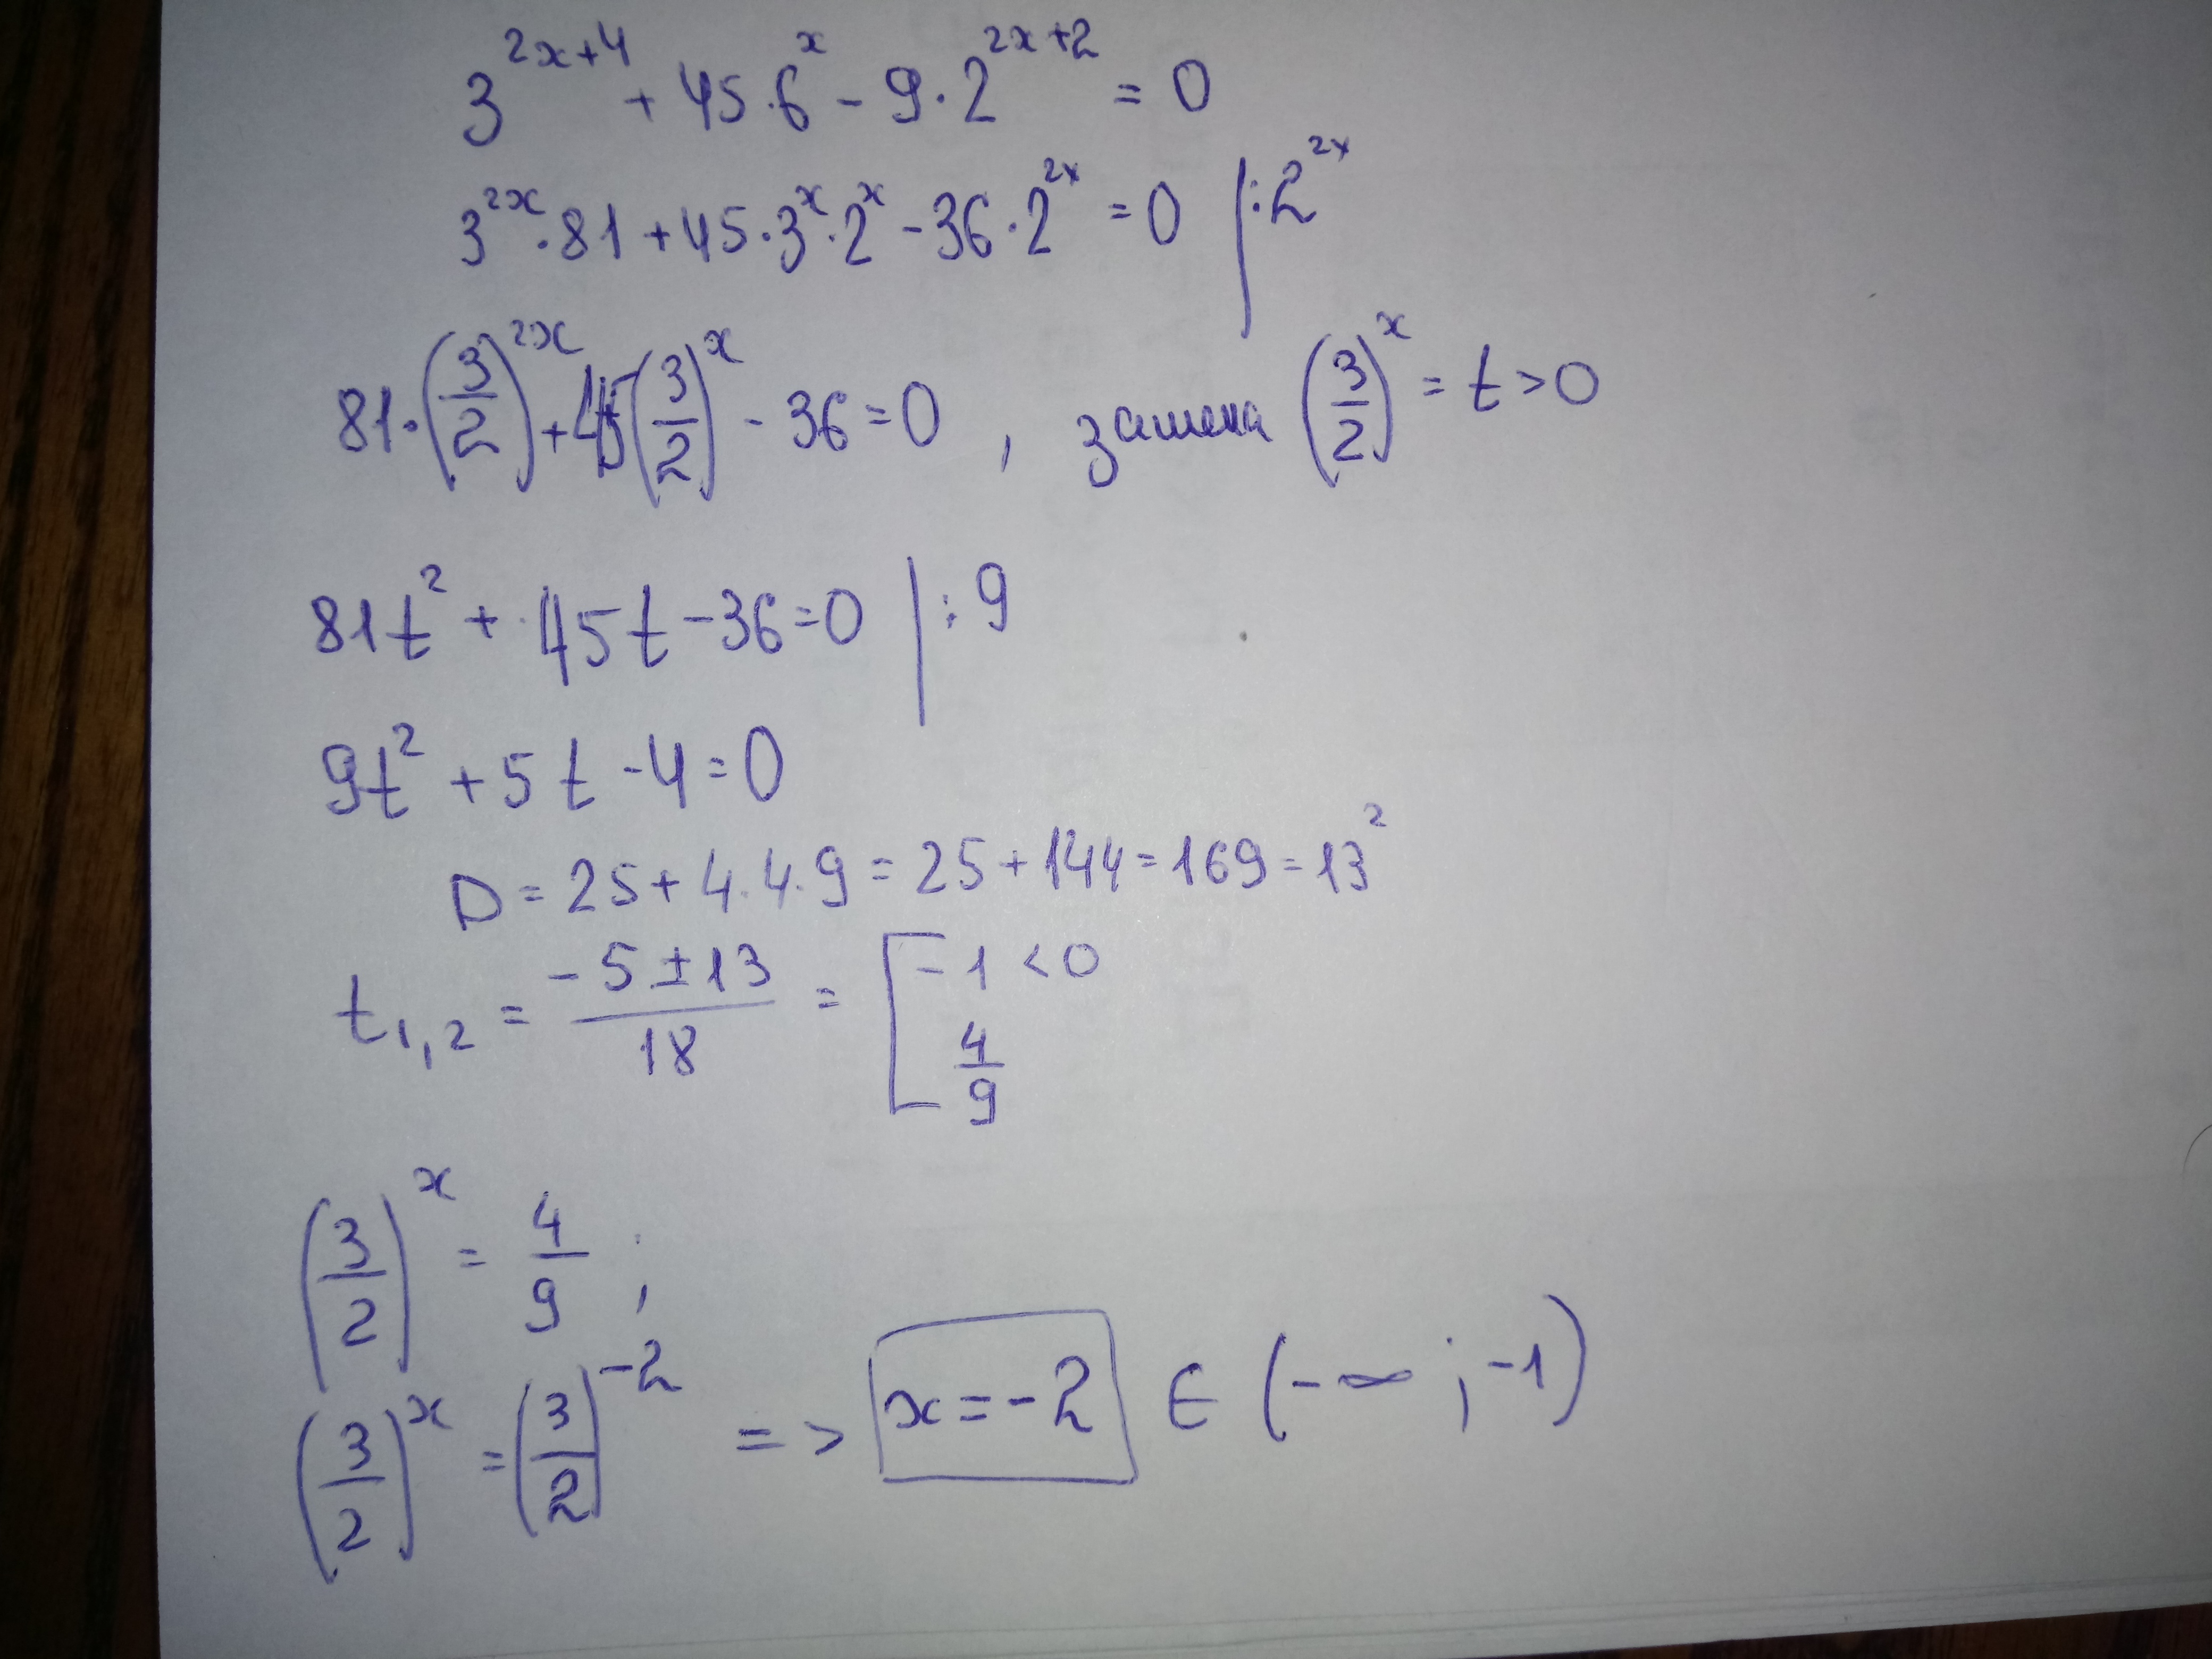 3^{2x+4} + 45·6^x - 9·2^{2x+2} = 0
3^{2x}·81 + 45·3^x·2^x - 36·2^{2x} = 0 | :2^{2x}
81·(3/2)^{2x} + 45(3/2)^x - 36 = 0 , замена (3/2)^x = t > 0
81t² + 45t - 36 = 0 | :9
9t² + 5t - 4 = 0
D = 25 + 4·4·9 = 25 + 144 = 169 = 13²
t_{1,2} = (-5 ± 13)/18 = [ -1 < 0
4/9
(3/2)^x = 4/9 ;
(3/2)^x = (3/2)^{-2} => x = -2 ∈ (-∞ ; -1)